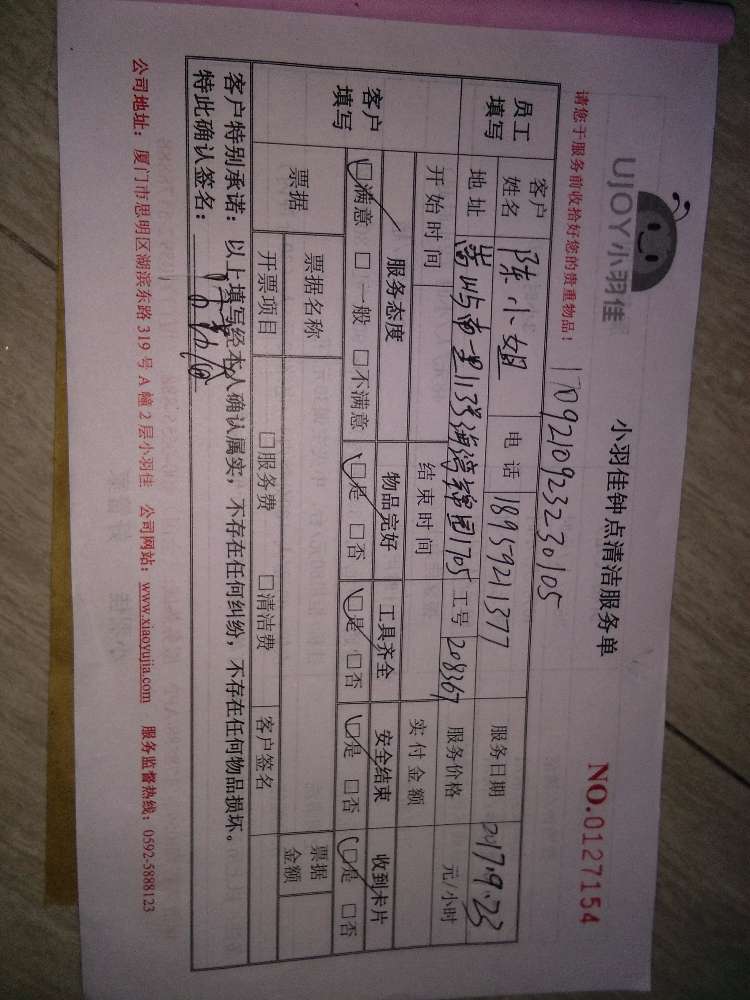 UJOY小羽佳
小羽佳钟点清洁服务单
NO.0127154
请您于服务前收拾好您的贵重物品！
17092109232230105
员工填写 客户姓名 陈小姐 电话 18959211377 服务日期 2017.9.23
地址 嵩屿南一里113号海湾锦园1705 工号 208367 服务价格 元/小时
开始时间 结束时间 实付金额
客户填写 服务态度 物品完好 工具齐全 安全结束 收到卡片
□满意 □一般 □不满意 □是 □否 □是 □否 □是 □否 □是 □否
票据 票据名称 票据金额
开票项目 □服务费 □清洁费 客户签名
客户特别承诺：以上填写经本人确认属实，不存在任何纠纷，不存在任何物品损坏。
特此确认签名：
公司地址：厦门市思明区湖滨东路 319 号 A 幢 2 层小羽佳 公司网站：www.xiaoyujia.com 服务监督热线：0592-5888123